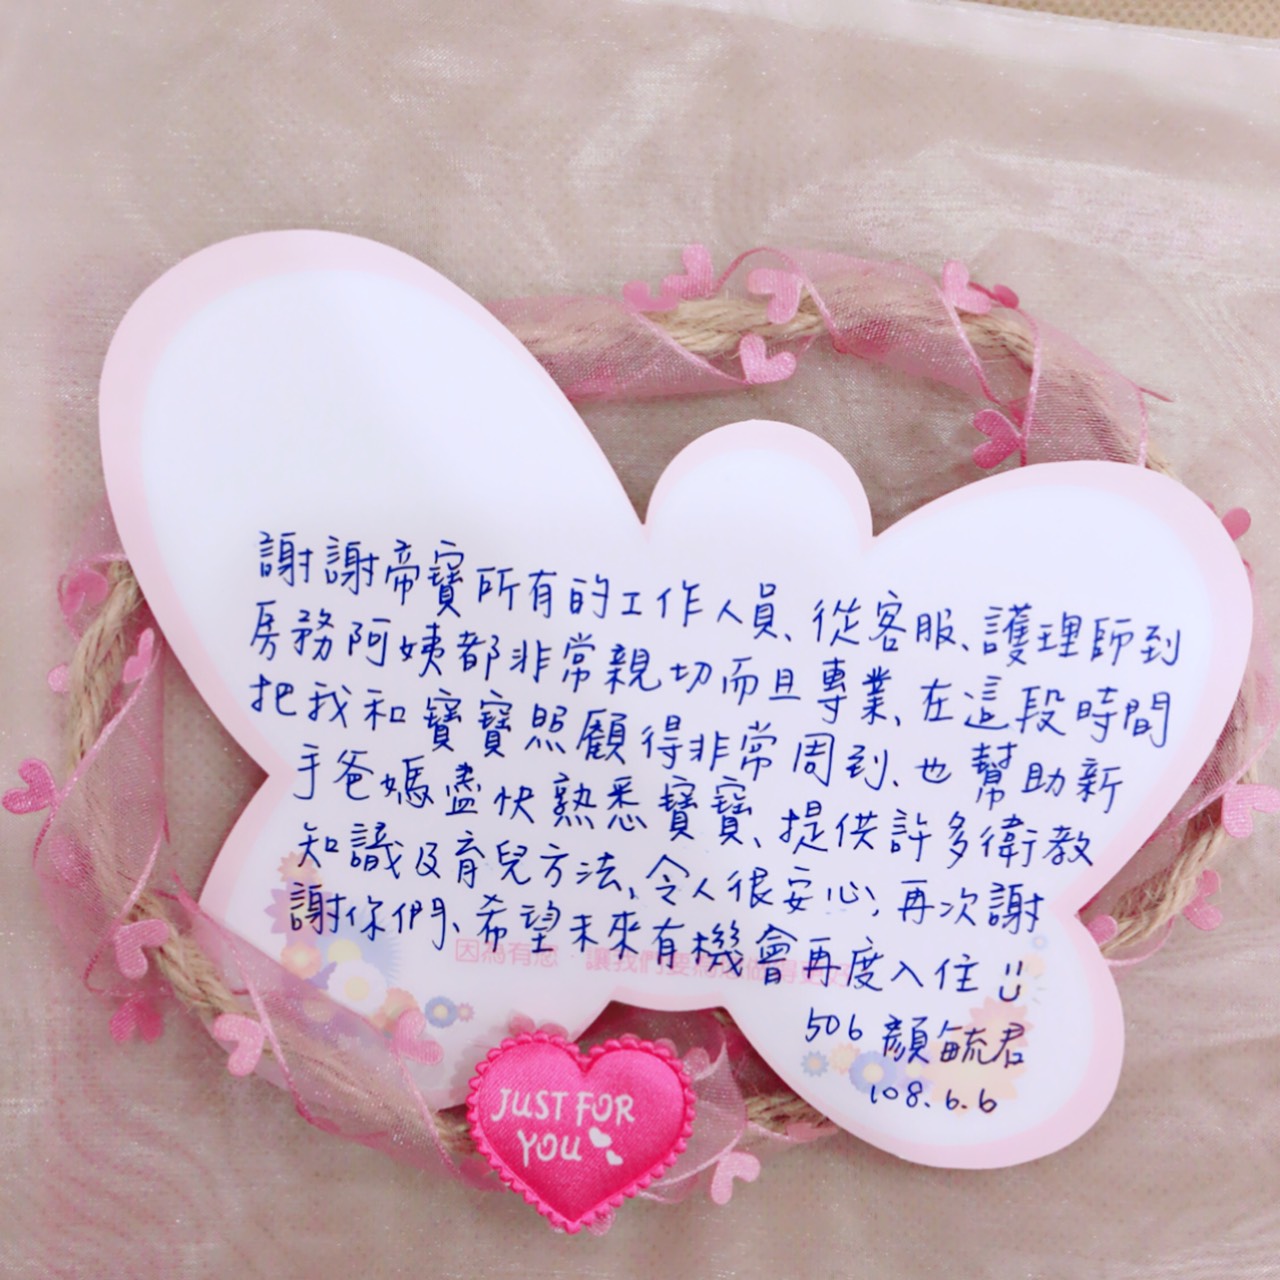 謝謝帝寶所有的工作人員、從客服、護理師到
房務阿姨都非常親切而且專業、在這段時間
把我和寶寶照顧得非常周到、也幫助新
手爸媽儘快熟悉寶寶、提供許多衛教
知識及育兒方法、令人很安心、再次謝
謝你們、希望未來有機會再度入住
因為有您 讓我們要為您做得更好
506 顏毓君
108.6.6
JUST FOR
YOU